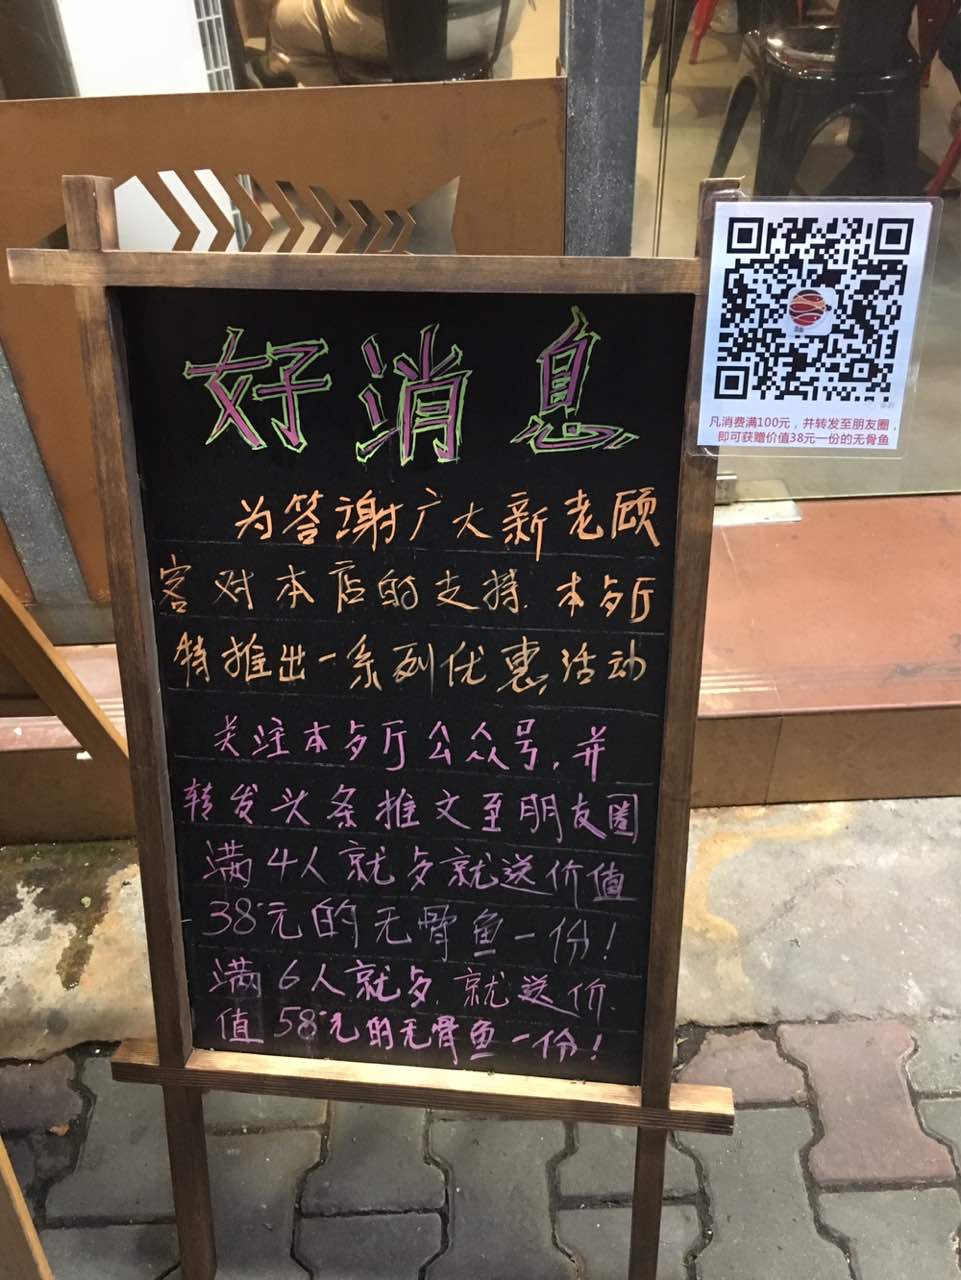 好消息
为答谢广大新老顾
客对本店的支持.本歺厅
特推出一系列优惠活动
关注本歺厅公众号,并
转发头条推文至朋友圈
满4人就歺就送价值
38元的无骨鱼一份!
满6人就歺.就送价
值58元的无骨鱼一份!
凡消费满100元，并转发至朋友圈，
即可获赠价值38元一份的无骨鱼